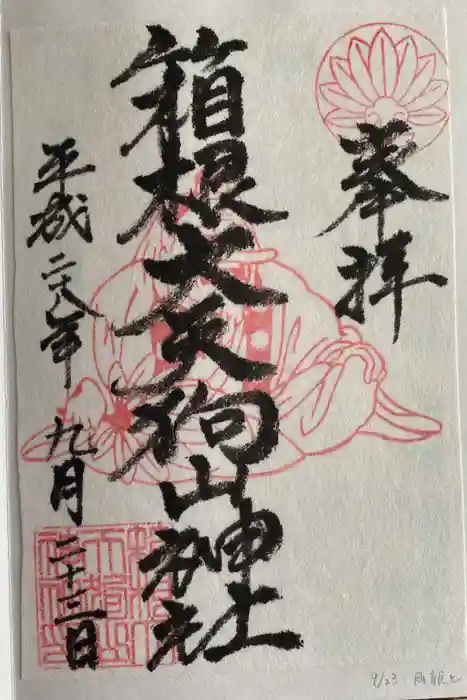 奉拝
箱根大天狗山神社
平成二十八年九月二十三日
9/23 両親と